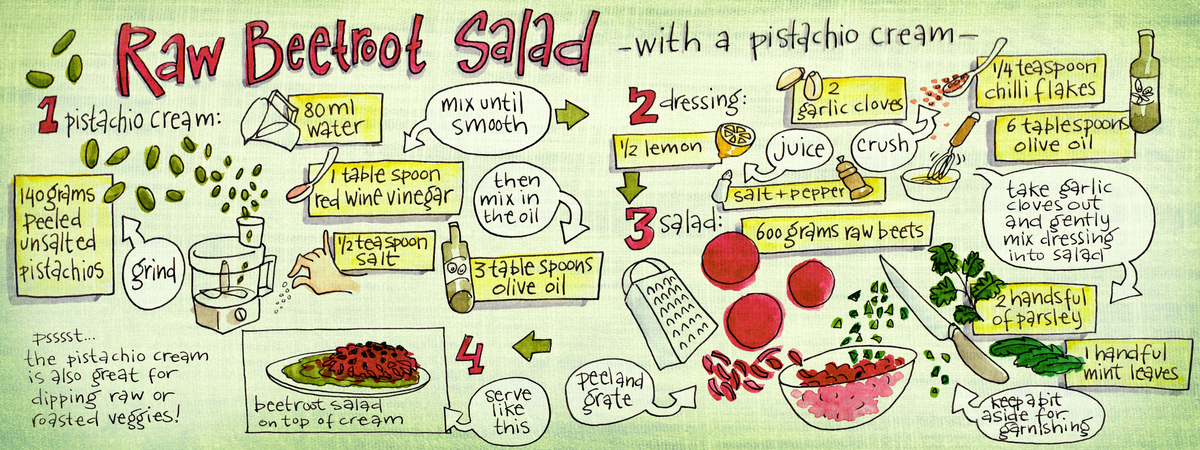 Raw Beetroot Salad
-with a pistachio cream-
1 pistachio cream:
140 grams
peeled
unsalted
pistachios
grind
80 ml
water
1 table spoon
red wine vinegar
1/2 teaspoon
salt
mix until
smooth
then
mix in
the oil
3 table spoons
olive oil
2 dressing:
1/2 lemon
juice
2
garlic cloves
crush
1/4 teaspoon
chilli flakes
6 tablespoons
olive oil
salt + pepper
take garlic
cloves out
and gently
mix dressing
into salad
3 salad:
600 grams raw beets
peel and
grate
2 handsful
of parsley
1 handful
mint leaves
keep a bit
aside for
garnishing
4
serve
like
this
beetroot salad
on top of cream
psssst...
the pistachio cream
is also great for
dipping raw or
roasted veggies!